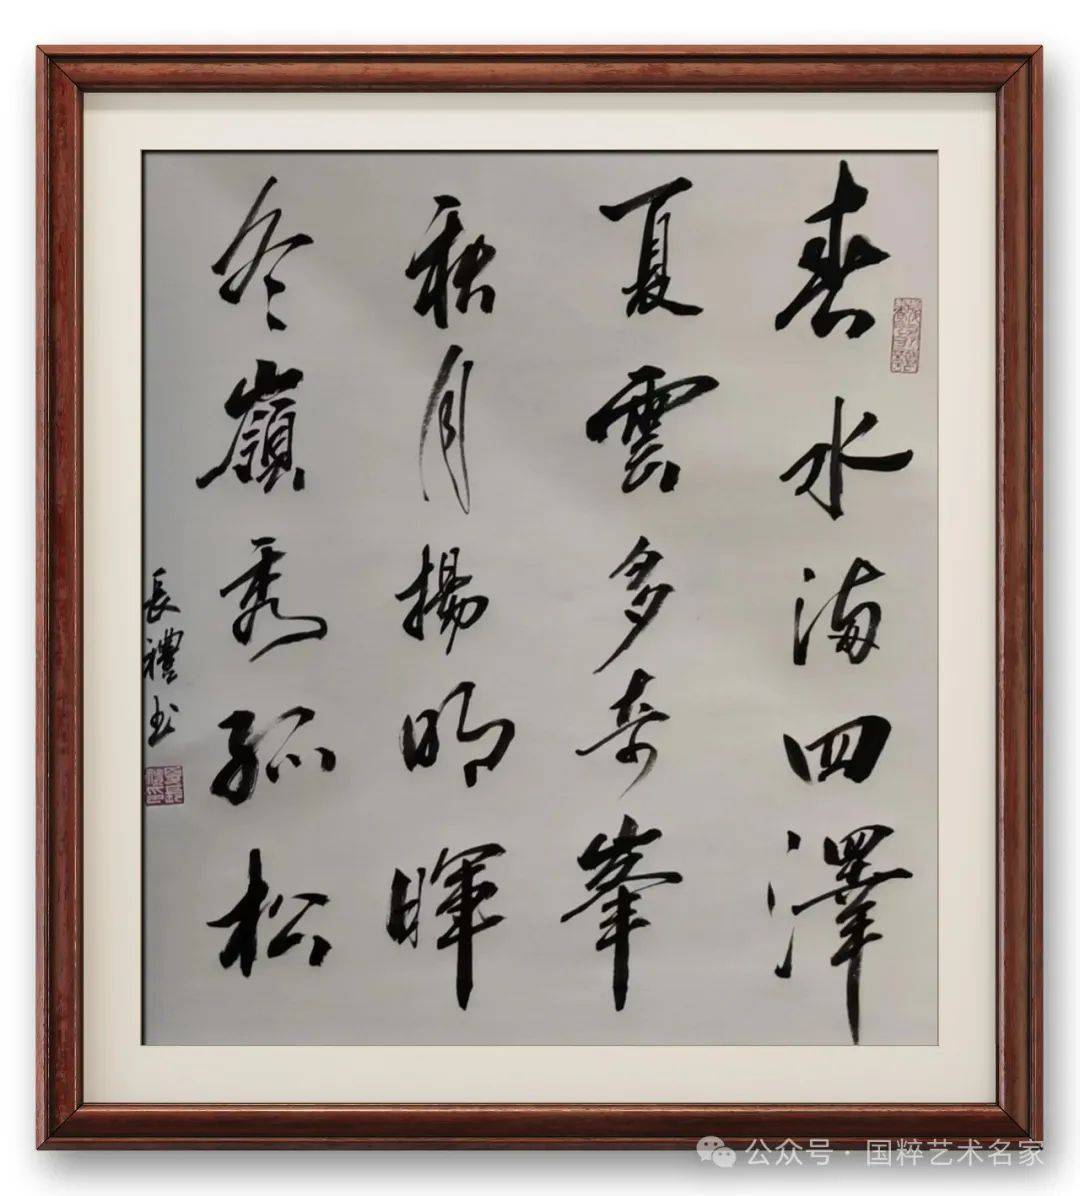 春水满四澤
夏雲多奇峯
秋月揚明暉
冬嶺秀孤松
長禮书
公众号·国粹艺术名家